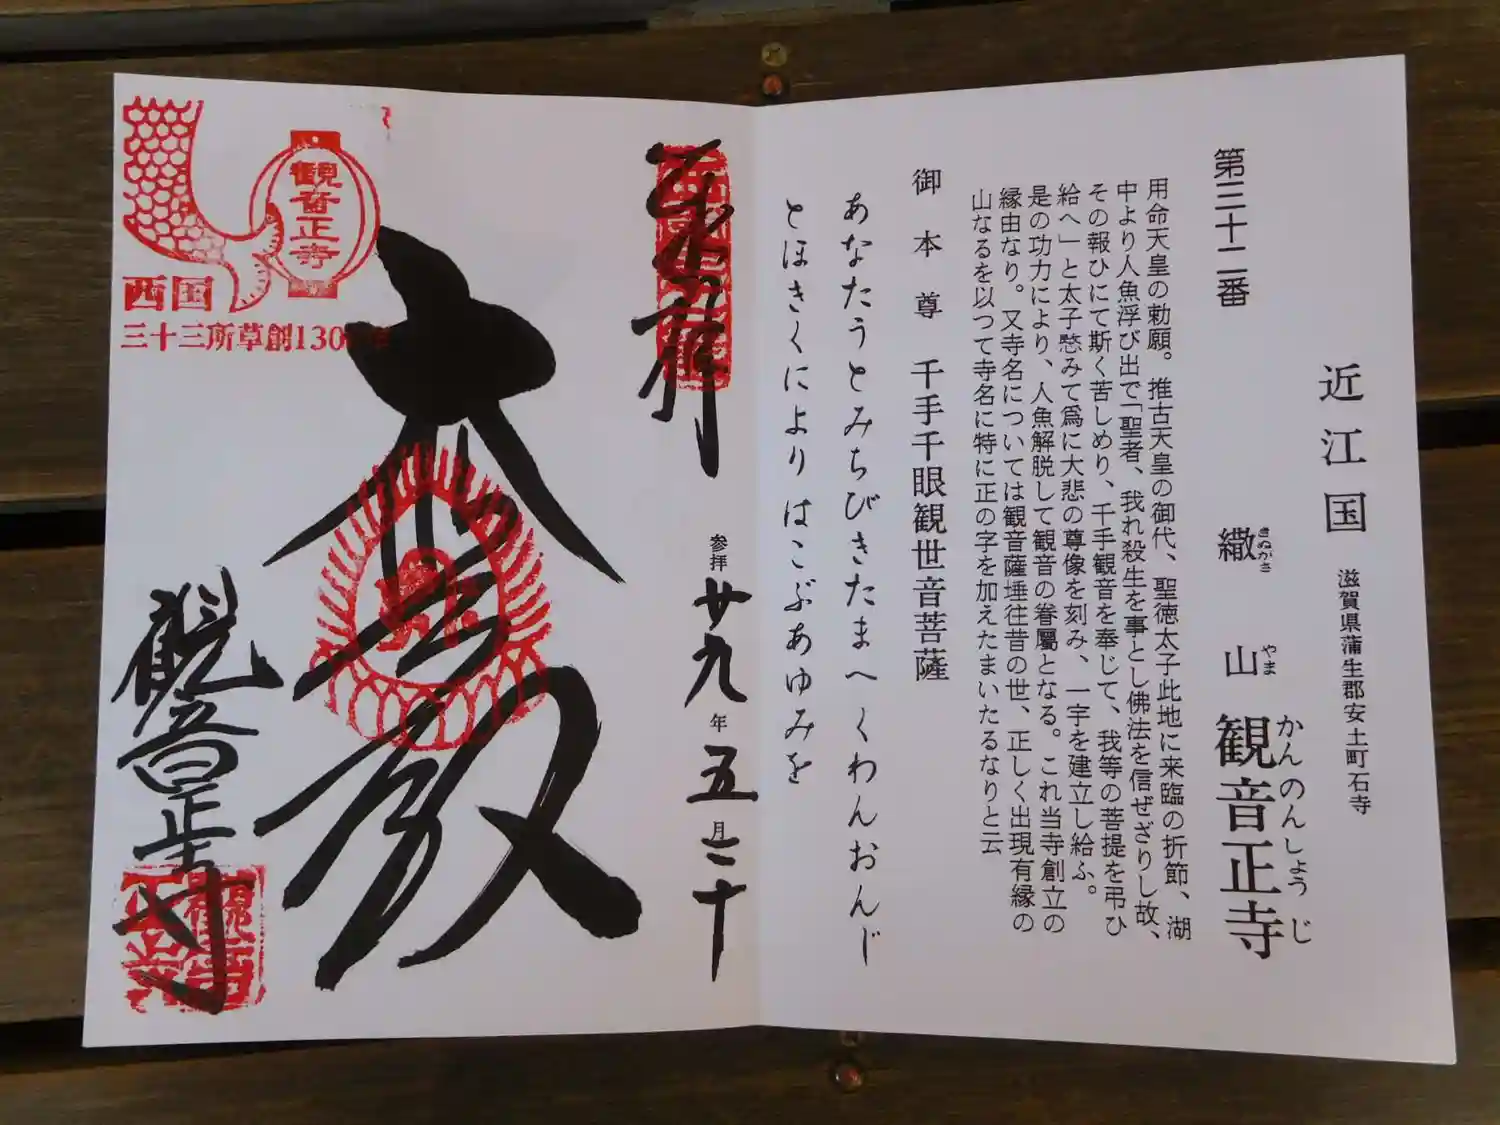 近江国 滋賀県蒲生郡安土町石寺
第三十二番
繖山 観音正寺
きぬがさ やま かんのんしょうじ
用命天皇の勅願。推古天皇の御代、聖徳太子此地に来臨の折節、湖
中より人魚浮び出で「聖者、我れ殺生を事とし佛法を信ぜざりし故、
その報ひにて斯く苦しめり、千手観音を奉じて、我等の菩提を弔ひ
給へ」と太子愍みて爲に大悲の尊像を刻み、一宇を建立し給ふ。
是の功力により、人魚解脱して観音の眷屬となる。これ当寺創立の
縁由なり。又寺名については観音薩埵往昔の世、正しく出現有縁の
山なるを以つて寺名に特に正の字を加えたまいたるなりと云
御本尊 千手千眼観世音菩薩
あなたうとみちびきたまへくわんおんじ
とほきくによりはこぶあゆみを
奉拝
参拝 廿九年五月二十
大悲殿
観音正寺
観音正寺
西国
三十三所草創130